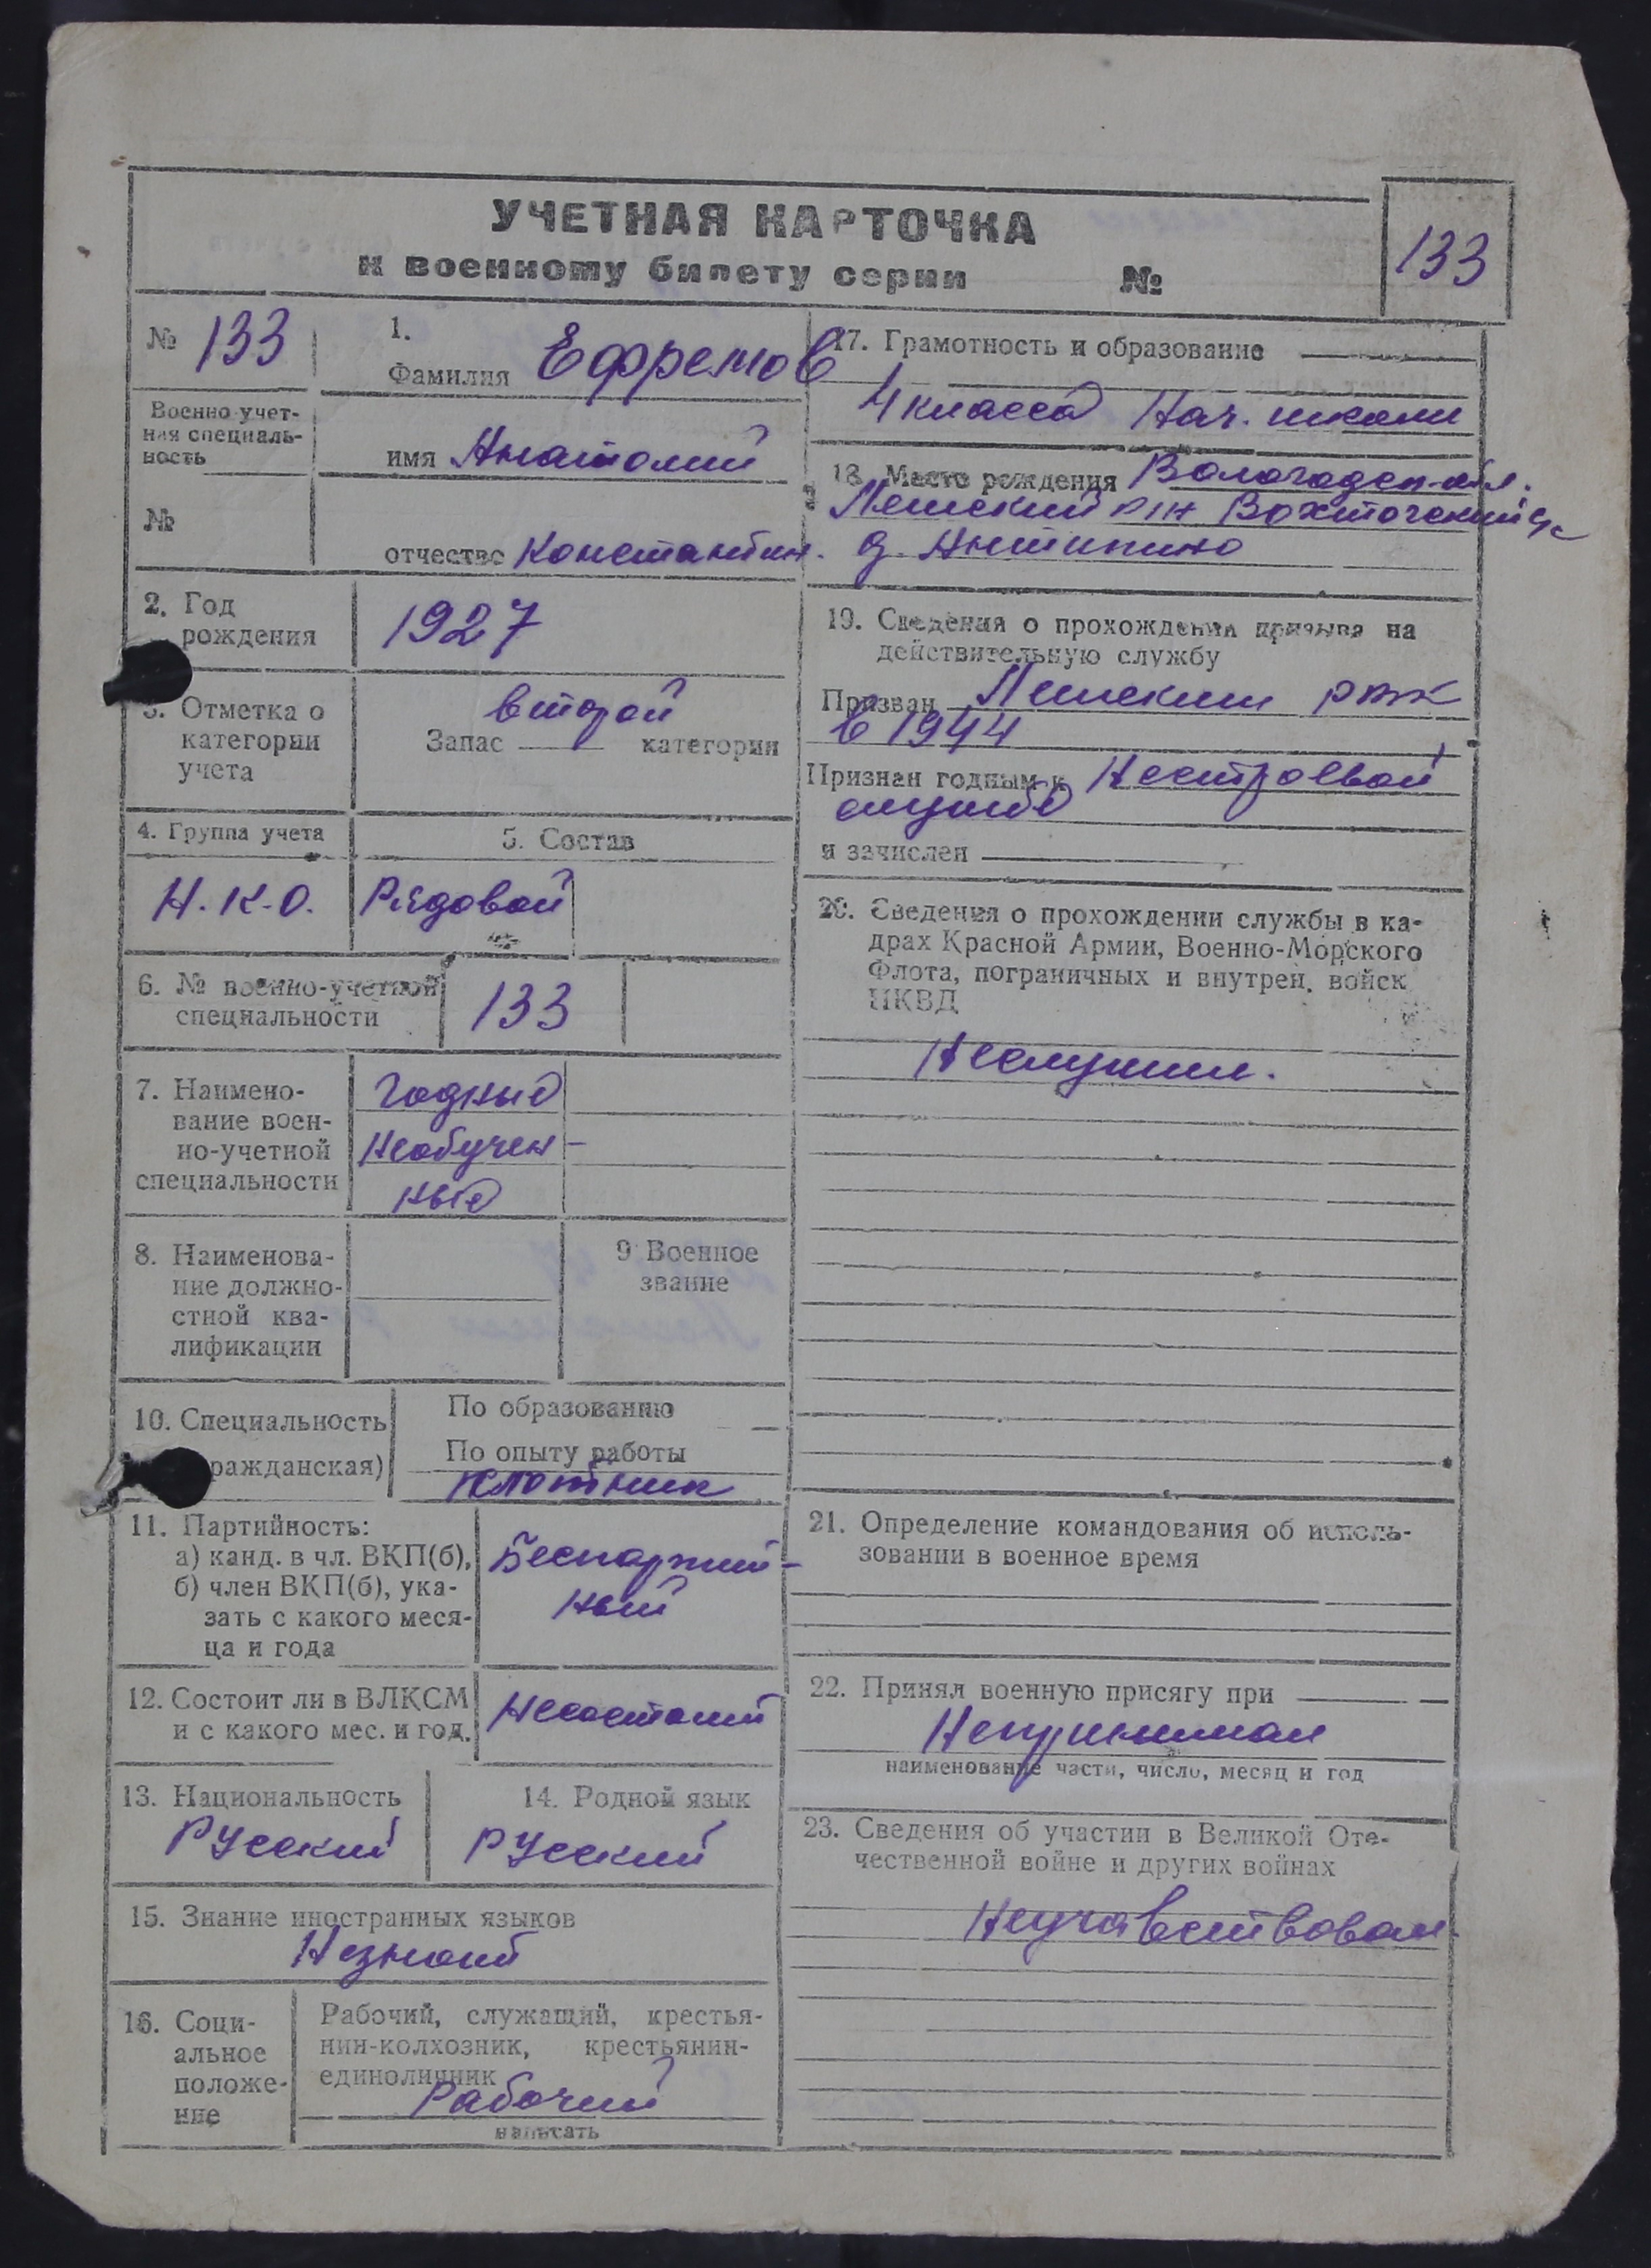 УЧЕТНАЯ КАРТОЧКА
к военному билету серии №
133
№ 133
Военно-учет-
ная специаль-
ность
№
1.
Фамилия Ефремов
имя Анатолий
отчество Константин.
2. Год
рождения
1927
3. Отметка о
категории
учета
второй
Запас категории
4. Группа учета
Н.К.О.
5. Состав
Рядовой
6. № военно-учетной
специальности
133
7. Наимено-
вание воен-
но-учетной
специальности
Годные
Необучен-
ные
8. Наименова-
ние должно-
стной ква-
лификации
9 Военное
звание
10. Специальность
ражданская)
По образованию
По опыту работы
плотник
11. Партийность:
а) канд. в чл. ВКП(б),
б) член ВКП(б), ука-
зать с какого меся-
ца и года
Беспартий-
ный
12. Состоит ли в ВЛКСМ
и с какого мес. и год.
Несостоит
13. Национальность
Русский
14. Родной язык
Русский
15. Знание иностранных языков
Незнает
16. Соци-
альное
положе-
ние
Рабочий, служащий, крестья-
нин-колхозник, крестьянин-
единоличник
Рабочий
написать
17. Грамотность и образование
4 класса Нач. школи
18. Место рождения Вологодск-обл.
Лешский р/н Вохточский с/с
д. Антипино
19. Сведения о прохождении призыва на
действительную службу
Призван Лешским РВК
в 1944
Признан годным к Нестроевой
службе
и зачислен
20. Сведения о прохождении службы в ка-
драх Красной Армии, Военно-Морского
Флота, пограничных и внутрен. войск
НКВД
Неслужил.
21. Определение командования об исполь-
зовании в военное время
22. Принял военную присягу при
Непринимал
наименование части, число, месяц и год
23. Сведения об участии в Великой Оте-
чественной войне и других войнах
Неучавствовал